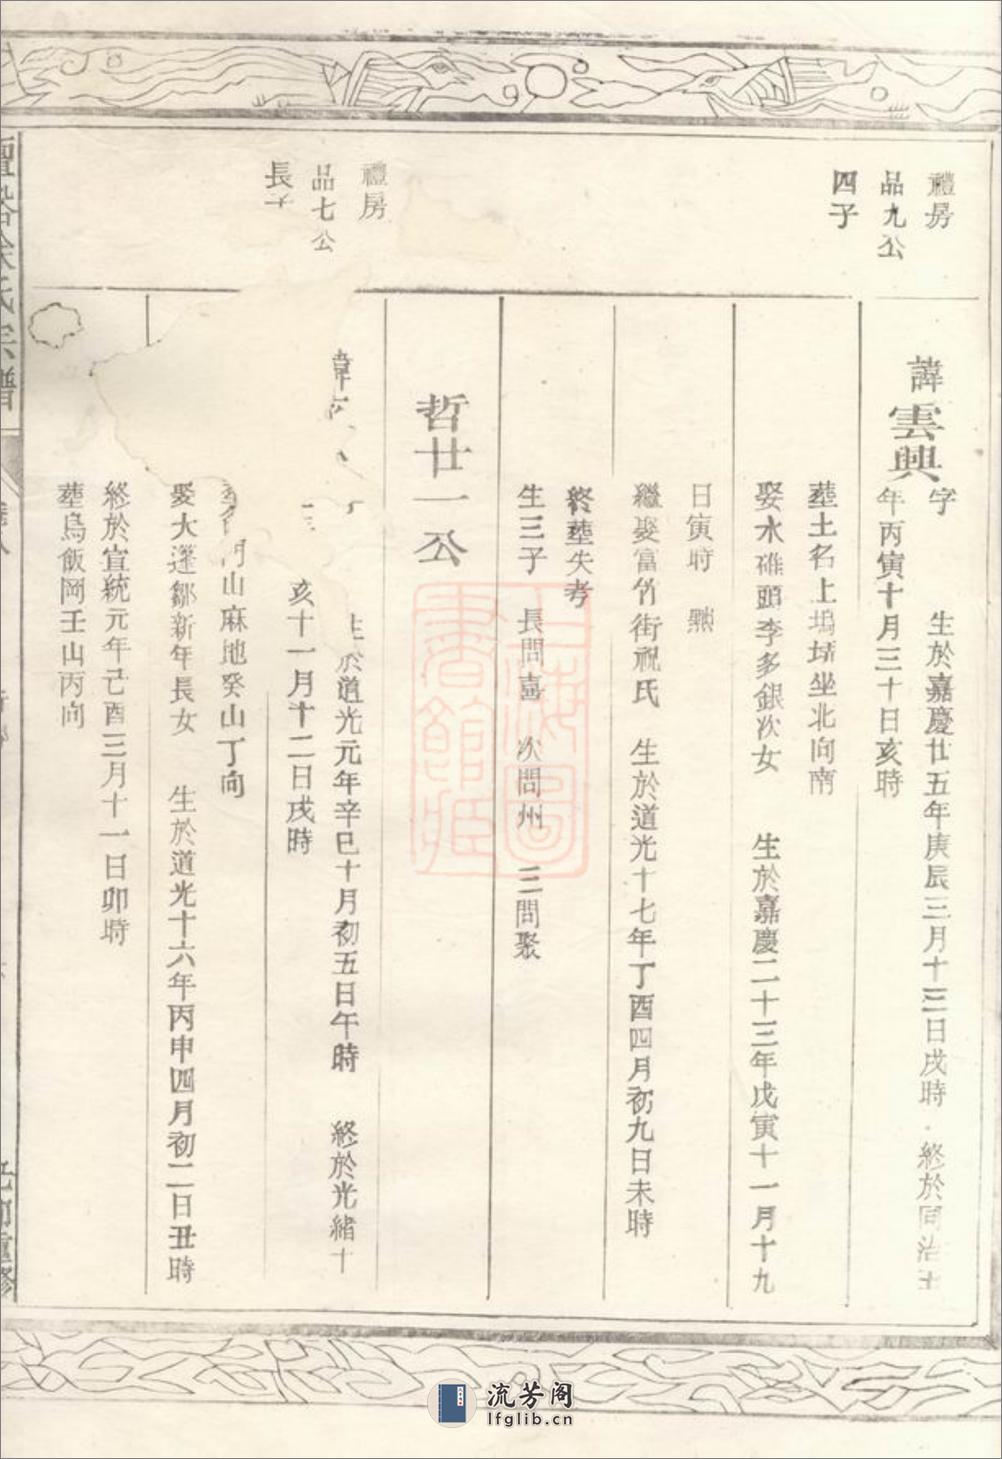 禮房
品九公
四子
諱雲興
字 生於嘉慶廿五年庚辰三月十三日戌時 終於同治
年丙寅十月三十日亥時
葬土名上塢坐北向南
娶水碓頭李多銀次女 生於嘉慶二十三年戊寅十一月十九
日寅時 歿
繼娶富竹街祝氏 生於道光十七年丁酉四月初九日未時
終葬失考
生三子 長問嘉 次問州 三問聚
哲廿一公
禮房
品七公
長子
諱
生於道光元年辛巳十月初五日午時 終於光緒十
亥十一月十二日戌時
山麻地癸山丁向
娶大蓬鄒新年長女 生於道光十六年丙申四月初二日丑時
終於宣統元年己酉三月十一日卯時
葬烏飯岡壬山丙向
氏宗譜
重修
上海圖書館藏
流芳阁
lfglib.cn